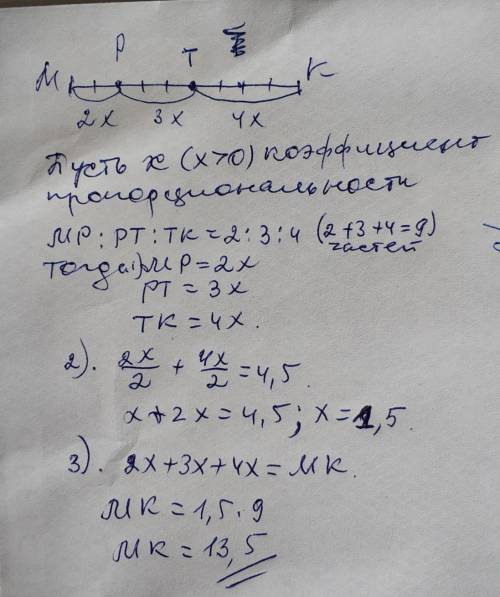 P
M T K
2x 3x 4x
Пусть x (x>0) коэффициент
пропорциональности
MP : PT : TK = 2 : 3 : 4 (2+3+4=9)
частей
тогда 1) MP = 2x
PT = 3x
TK = 4x.
2). 2x/2 + 4x/2 = 4,5.
x + 2x = 4,5; x = 1,5.
3). 2x+3x+4x = MK.
MK = 1,5 · 9
MK = 13,5